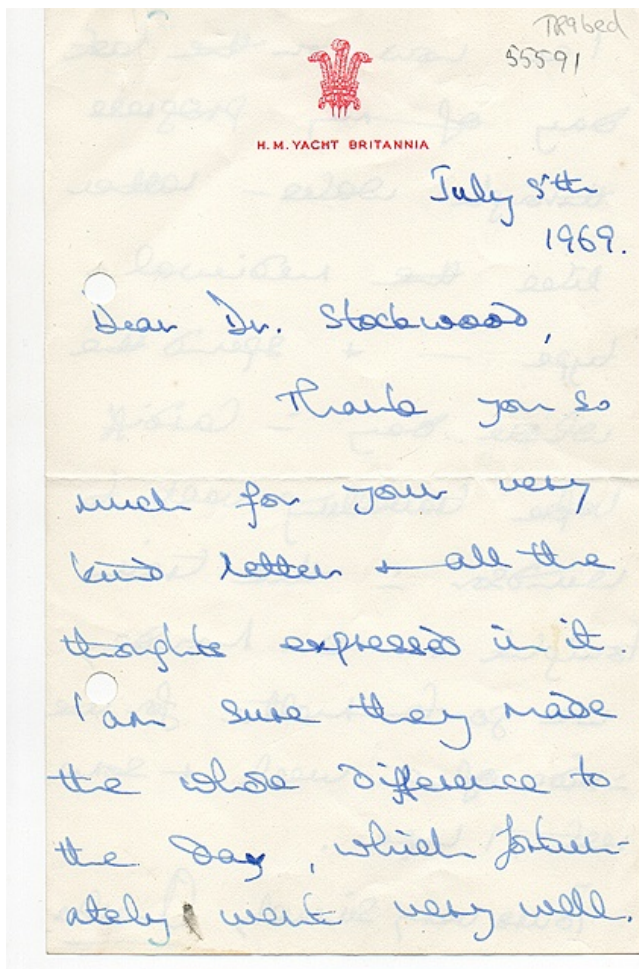 55591
H.M. YACHT BRITANNIA
July 5th
1969.
Dear Dr. Stockwood,
Thank you so
much for your very
kind letter & all the
thoughts expressed in it.
I am sure they made
the whole difference to
the day, which fortun-
ately went very well.